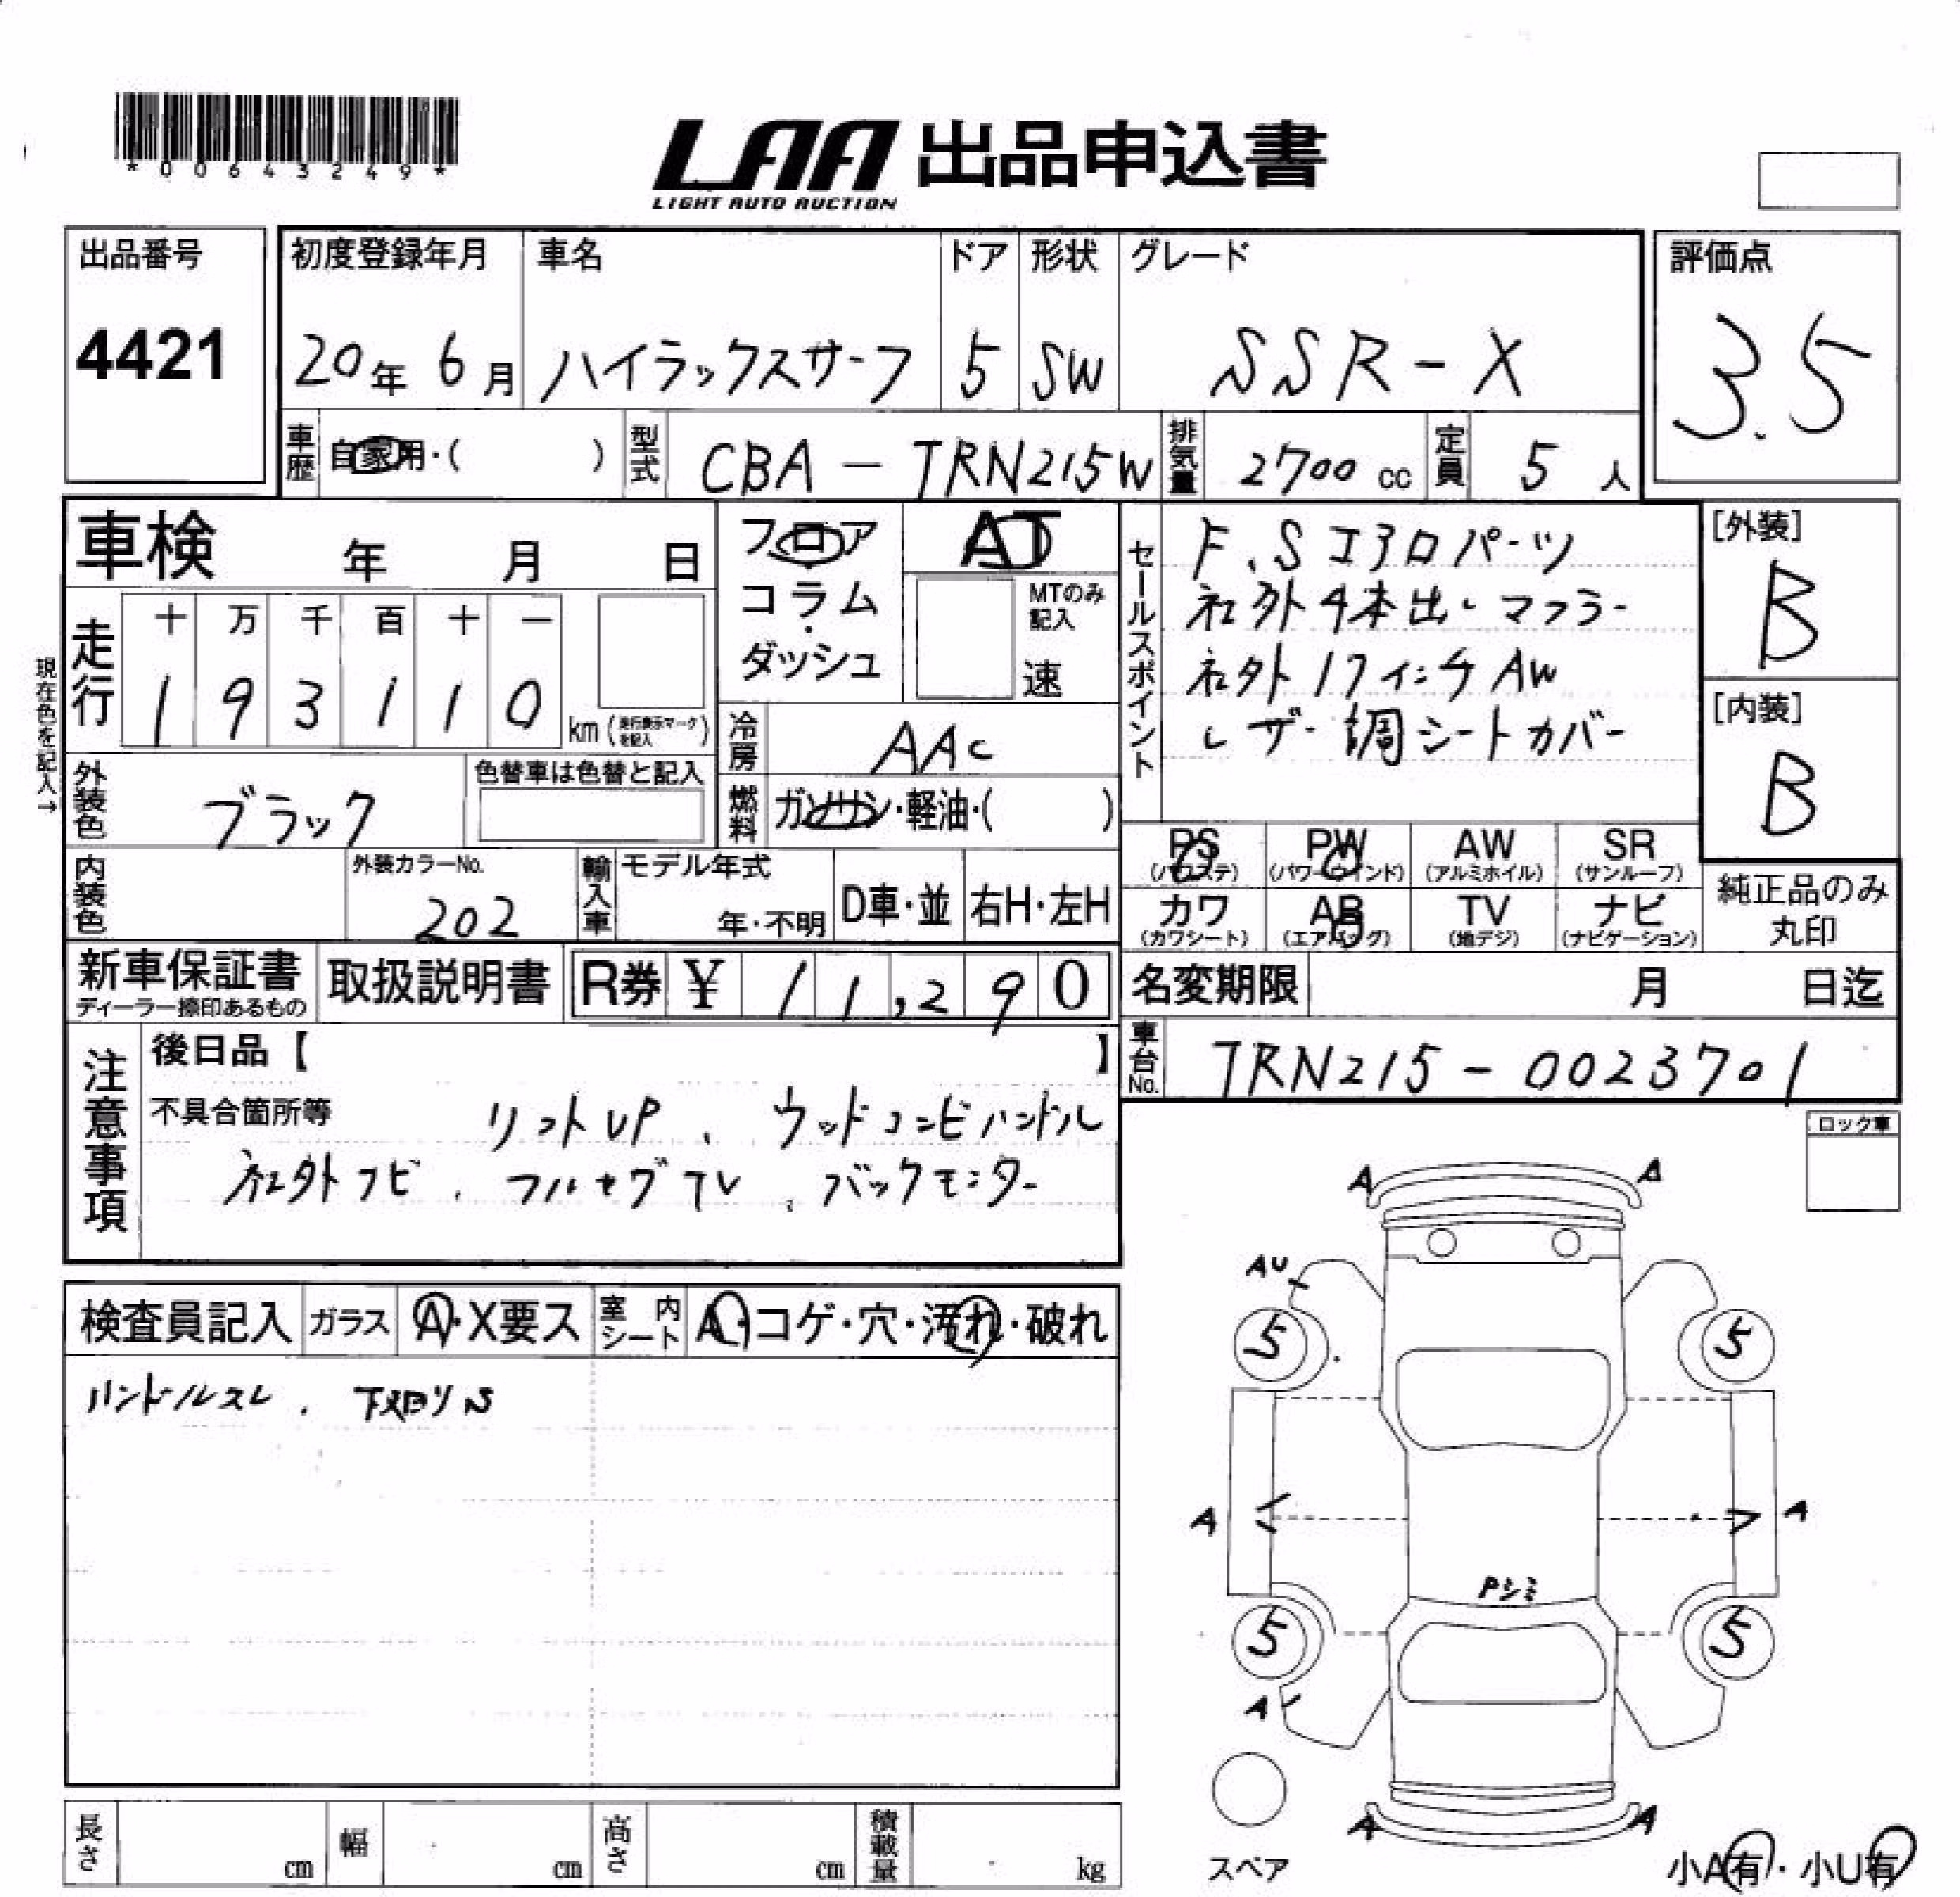 *00643249*
LAA 出品申込書
LIGHT AUTO AUCTION
出品番号
4421
初度登録年月
20年 6月
車名
ハイラックスサーフ
ドア
5
形状
SW
グレード
SSR-X
評価点
3.5
車歴 自家用・( )
型式 CBA - TRN215W
排気量 2700 cc
定員 5 人
車検 年 月 日
フロア・コラム・ダッシュ
AT
MTのみ記入
速
現在色を記入→
走行
十 万 千 百 十 一
1 9 3 1 1 0
km (走行表示マークを記入)
冷房 AAC
燃料 ガソリン・軽油・( )
外装色 ブラック
色替車は色替と記入
内装色
外装カラーNo.
202
輸入車 モデル年式
年・不明
D車・並
右H・左H
セールスポイント
F.Sエアロパーツ
社外4本出しマフラー
社外17インチAW
レザー調シートカバー
[外装]
B
[内装]
B
PS (パワステ)
PW (パワーウインド)
AW (アルミホイル)
SR (サンルーフ)
カワ (カワシート)
AB (エアバッグ)
TV (地デジ)
ナビ (ナビゲーション)
純正品のみ丸印
新車保証書
ディーラー捺印あるもの
取扱説明書
R券 ¥ 11,290
名変期限 月 日迄
車台No. TRN215-0023701
注意事項
後日品【 】
不具合箇所等
リフトUP 、 ウッドコンビハンドル
社外ナビ 、 フルセグTV 、 バックモニター
ロック車
検査員記入
ガラス A・X要ス
室内シート A・コゲ・穴・汚れ・破れ
ハンドルスレ 、 下廻りS
A A
AU
5 5
A A
Pシミ
5 5
A
A A
スペア
小A有・小U有
長さ cm
幅 cm
高さ cm
積載量 kg